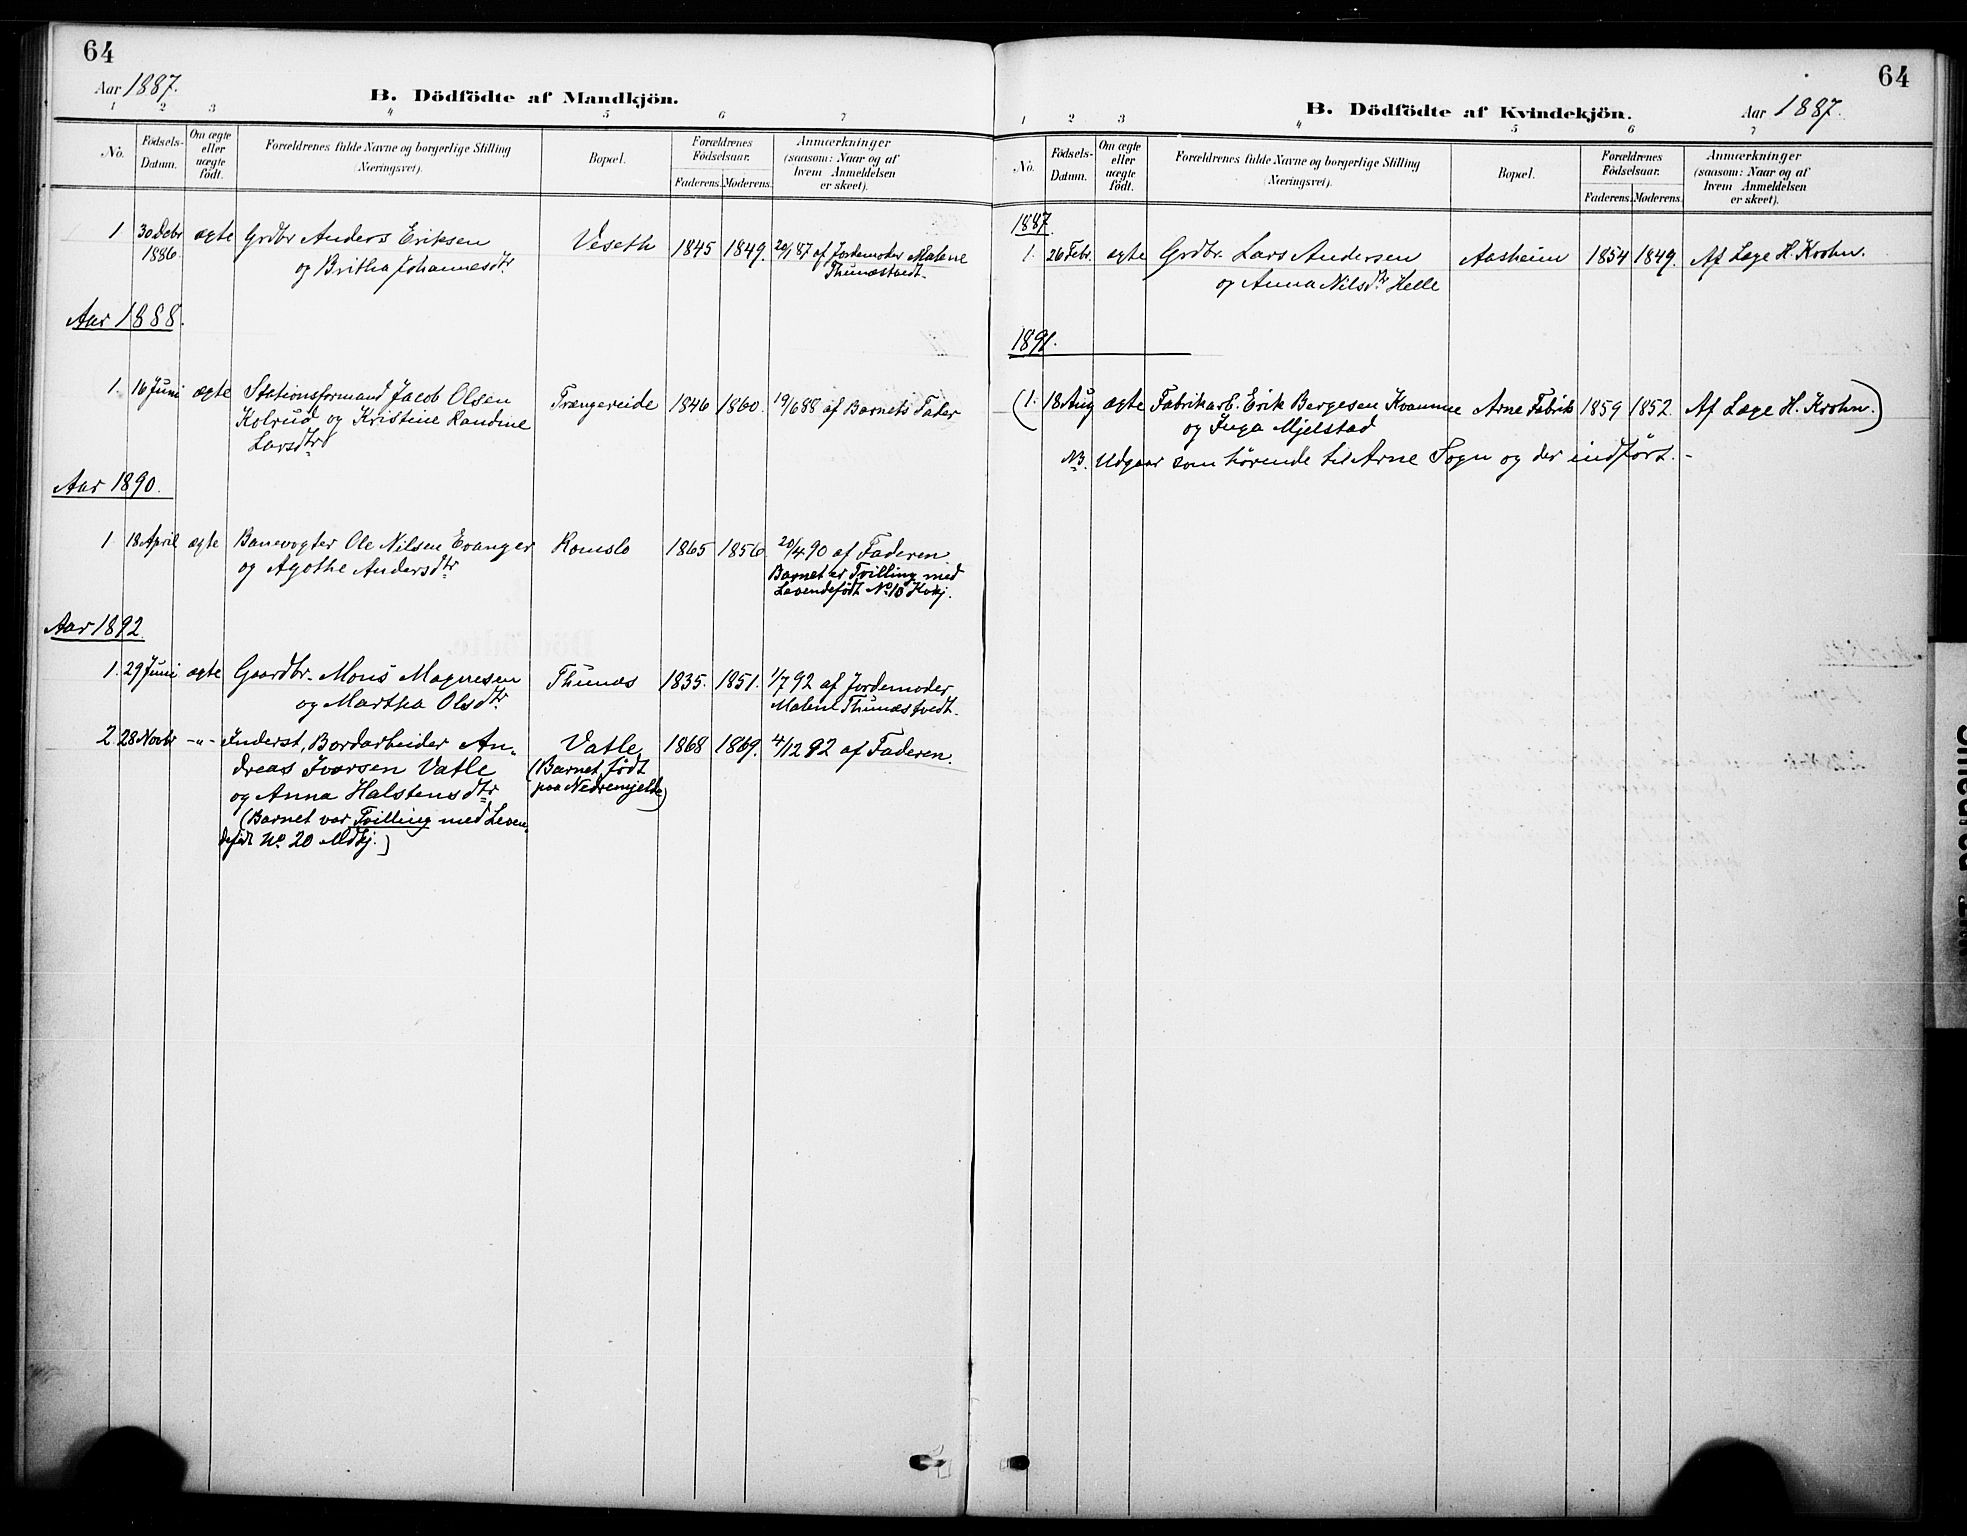 64
Aar 1887.
B. Dödfödte af Mandkjön.
1 2 3 4 5 6 7
No. Födsels-Datum. Om ægte eller uægte födt. Forældrenes fulde Navne og borgerlige Stilling (Næringsvei). Bopæl. Forældrenes Födselsaar. Faderens. Moderens. Anmærkninger (saasom: Naar og af hvem Anmeldelsen er skeet).
1 30 Decbr ægte Grdbr Anders Eriksen Veseth 1845 1849. 20/1 87 af Jordemoder Malene
1886. og Britha Johannesdtr Thunæstvedt.
Aar 1888.
1. 16 Juni ægte Stationsformand Jacob Olsen Trængereide 1846 1860. 19/6 88 af Barnets Fader
Kolrud og Kristine Randine
Larsdtr
Aar 1890.
1 18 April ægte Banevogter Ole Nilsen Evanger Romslo 1865 1856 20/4 90 af Faderen
og Agothe Andersdtr Barnet er Tvilling med
Levendefødt No. 10 Kvkj.
Aar 1892.
1. 29 Juni ægte Gaardbr. Mons Magnesen Thunæs 1835. 1851. 1/7 92 af Jordemoder
og Martha Olsdtr. Malene Thunæstvedt.
2. 28 Novbr -"- Inderst, Bordarbeider An- Vatle 1868 1869. 4/12 92 af Faderen.
dreas Ivarsen Vatle (Barnet født
og Anna Halstensdtr paa Nedremjelde)
(Barnet var Tvilling med Leven-
defødt No. 20 Mdkj.)
64
Aar 1887.
B. Dödfödte af Kvindekjön.
1 2 3 4 5 6 7
No. Födsels-Datum. Om ægte eller uægte födt. Forældrenes fulde Navne og borgerlige Stilling (Næringsvei). Bopæl. Forældrenes Födselsaar. Faderens. Moderens. Anmærkninger (saasom: Naar og af hvem Anmeldelsen er skeet).
1887.
1. 26 Febr. ægte Grdbr. Lars Andersen Aasheim 1854 1849. Af Læge H. Krohn.
og Anna Nilsdtr Helle
1891.
(1. 18 Aug ægte Fabrikarb. Erik Bergesen Kvamme Arne Fabrik 1859 1852. Af Læge H. Krohn.)
og Inga Mjelstad
NB. Udgaar som hørende til Arne Sogn og der indført. -